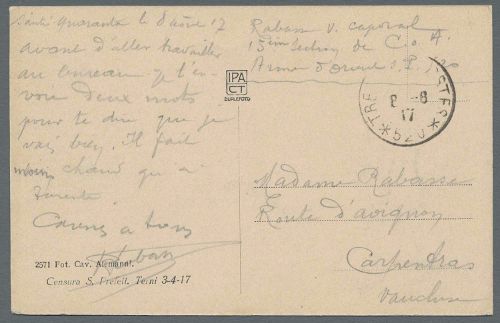 Santi Quaranta le 8 août 17
avant d'aller travailler
au bureau je t'en-
voie deux mots
pour te dire que je
vais bien. Il fait
moins chaud qu'à
Tarente
2571 Fot. Cav. Alemanni.
Censura S. Prefett. Terni 3-4-17
IPA
CT
DUPLEFOTO
Rabasse V. caporal
15em Section de C.O.A.
Armée d'Orient S.P. 520
TRE
STES
8 -8
17
Madame Rabasse
Route d'avignon
Carpentras
Vaucluse